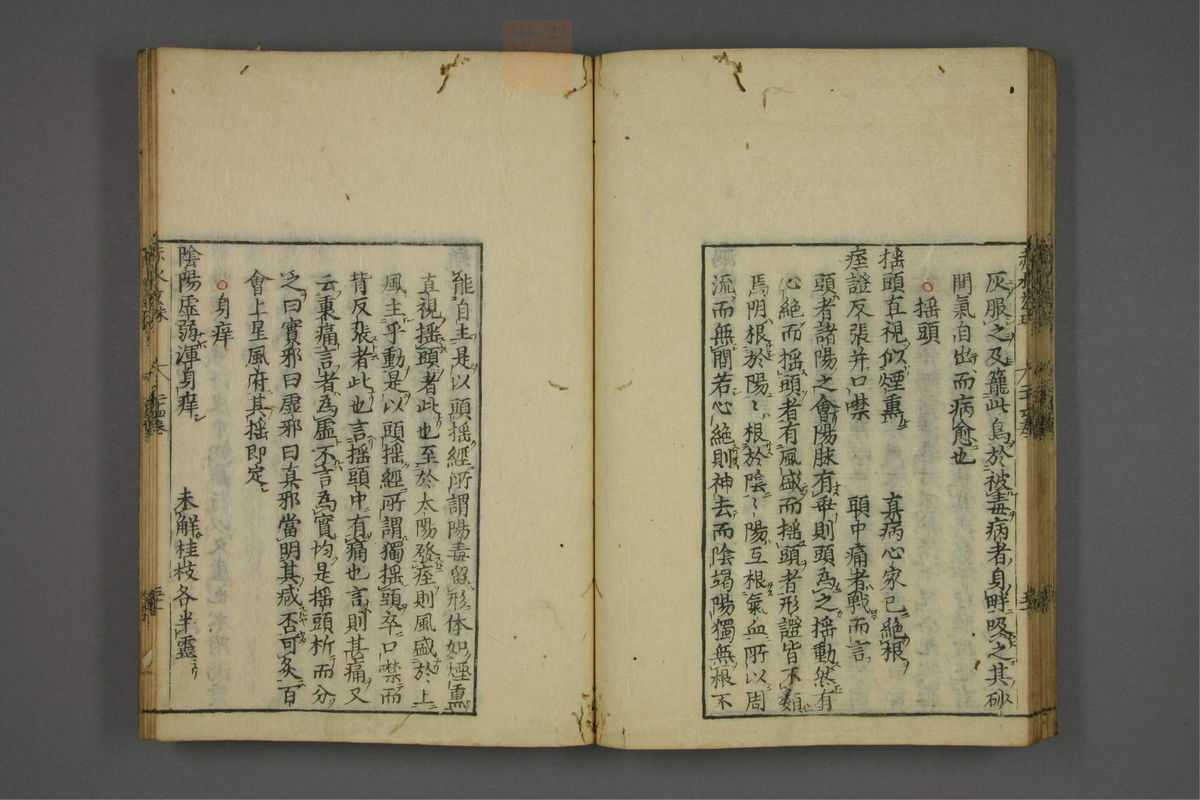 灰服之及籠此鳥於被毒病者身畔吸之其砂
間氣自出而病愈也
○搖頭
搖頭直視似煙熏　真病心家已絕根
痓證反張并口噤　頭中痛者戰而言
頭者諸陽之會陽脉有乖則頭為之搖動然有
心絕而搖頭者有風盛而搖頭者形證皆不類
焉明根於陽〻根於陰〻陽互根氣血所以周
流而無間若心絕則神去而陰竭陽獨無根不
能自主是以頭搖經所謂陽毒留形体如煙熏
直視搖頭者此也至於太陽發痓則風盛於上
風主乎動是以頭搖經所謂獨搖頭卒口噤而
背反張者此也言搖頭中有痛也言則甚痛又
云裏痛言者為虛不言為實均是搖頭析而分
之曰實邪曰虛邪曰真邪當明其咸否可灸百
會上星風府其搖即定
○身痒
陰陽虛弱渾身痒　未解桂枝各半靈